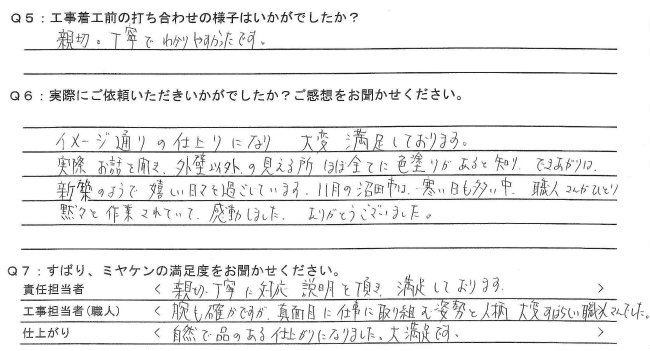 Q5:工事着工前の打ち合わせの様子はいかがでしたか?
親切。丁寧でわかりやすかったです。
Q6:実際にご依頼いただきいかがでしたか?ご感想をお聞かせください。
イメージ通りの仕上りになり 大変 満足しております。
実際 お話を聞き、外壁以外の見える所 ほぼ全てに色塗りがあると知り、できあがりは、
新築のようで 嬉しい日々を過ごしています。11月の沼田市は、寒い日も多い中、職人さんがひとり
黙々と作業されていて、感動しました。ありがとうございました。
Q7:ずばり、ミヤケンの満足度をお聞かせください。
責任担当者 < 親切、丁寧に対応 説明を頂き、満足しております。 >
工事担当者(職人) < 腕も確かですが、真面目に仕事に取り組む姿勢と人柄 大変すばらしい職人さんでした。>
仕上がり < 自然で品のある仕上がりになりました、大満足です。 >